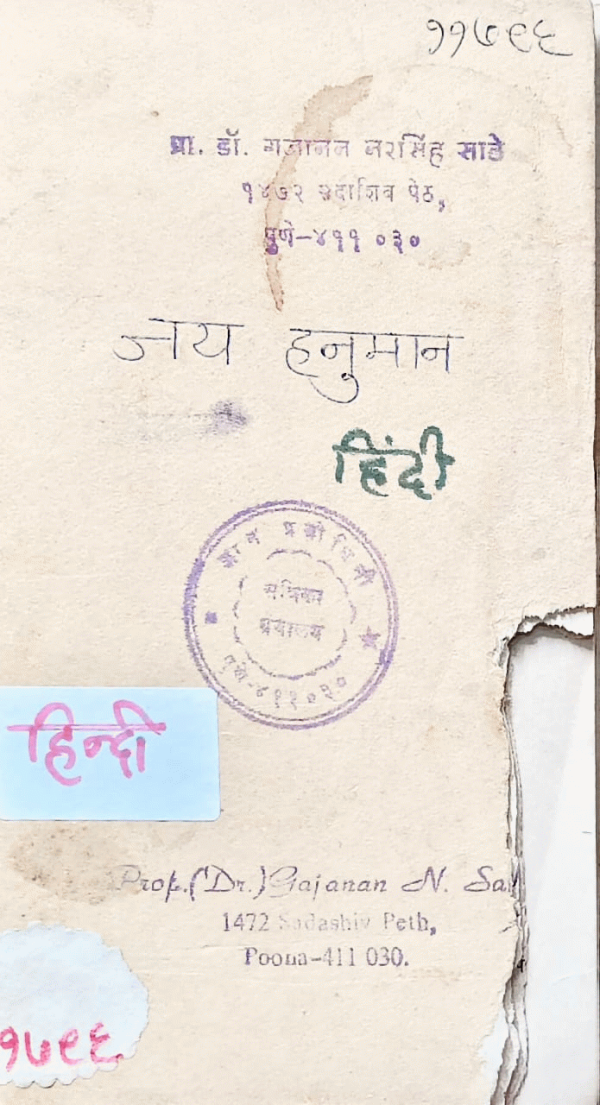 ११७९६
प्रा. डॉ. गजानन नरसिंह साठे
१४७२ सदाशिव पेठ,
पुणे-४११ ०३०
जय हनुमान
हिंदी
ज्ञान प्रबोधिनी
संत्रिका
ग्रंथालय
पुणे-४११०३०
हिन्दी
Prof.(Dr.) Gajanan N.
1472 Sadashiv Peth,
Poona-411 030.
१७९६